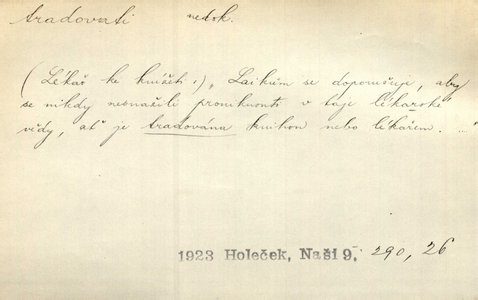 tradovati nedok.
(Lékař ke knížeti:) „Laikům se doporučuje, aby
se nikdy nesnažili proniknouti v taje lékařské
vědy, ať je tradována knihou nebo lékařem. ..."
1923 Holeček, Naši 9, 290, 26